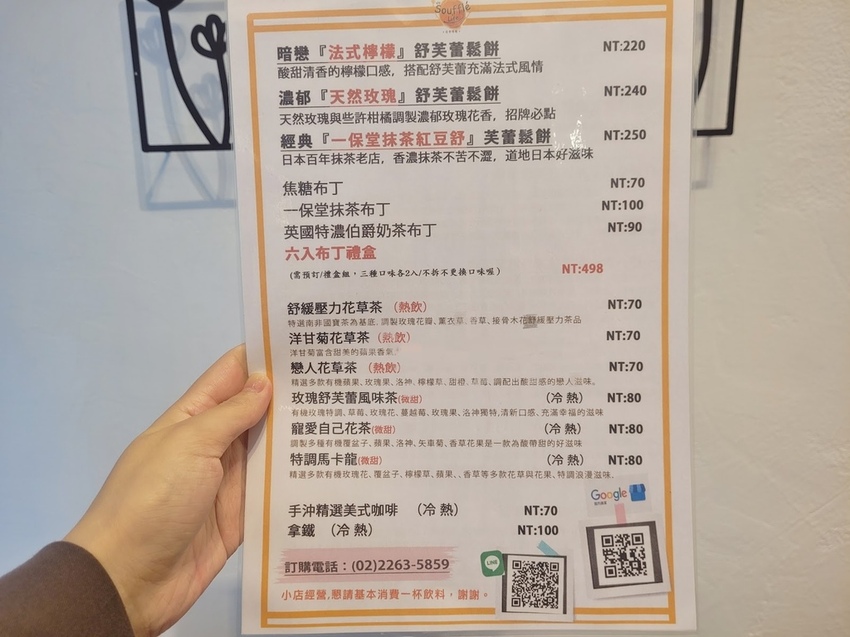 Soufflé
暗戀『法式檸檬』舒芙蕾鬆餅 NT:220
酸甜清香的檸檬口感，搭配舒芙蕾充滿法式風情
濃郁『天然玫瑰』舒芙蕾鬆餅 NT:240
天然玫瑰與些許柑橘調製濃郁玫瑰花香，招牌必點
經典『一保堂抹茶紅豆舒』芙蕾鬆餅 NT:250
日本百年抹茶老店，香濃抹茶不苦不澀，道地日本好滋味
焦糖布丁 NT:70
一保堂抹茶布丁 NT:100
英國特濃伯爵奶茶布丁 NT:90
六入布丁禮盒
(需預訂/禮盒組，三種口味各2入/不拆不更換口味喔) NT:498
舒緩壓力花草茶（熱飲） NT:70
特選南非國寶茶為基底，調製玫瑰花瓣、薰衣草、香草、接骨木花舒緩壓力茶品
洋甘菊花草茶（熱飲） NT:70
洋甘菊富含甜美的蘋果香氣
戀人花草茶（熱飲） NT:70
精選多款有機蘋果、玫瑰果、洛神、檸檬草、甜橙、草莓、調配出酸甜感的戀人滋味。
玫瑰舒芙蕾風味茶(微甜) （冷 熱） NT:80
有機玫瑰特調、草莓、玫瑰花、蔓越莓、玫瑰果、洛神獨特,清新口感、充滿幸福的滋味
寵愛自己花茶(微甜) （冷 熱） NT:80
調製多種有機覆盆子、蘋果、洛神、矢車菊、香草花果是一款為酸帶甜的好滋味
特調馬卡龍(微甜) （冷 熱） NT:80
精選多款有機玫瑰花、覆盆子、檸檬草、蘋果、、香草等多款花草與花果、特調浪漫滋味。
手沖精選美式咖啡 （冷 熱） NT:70
拿鐵 （冷 熱） NT:100
Google
訂購電話：(02)2263-5859
LINE
小店經營,懇請基本消費一杯飲料，謝謝。